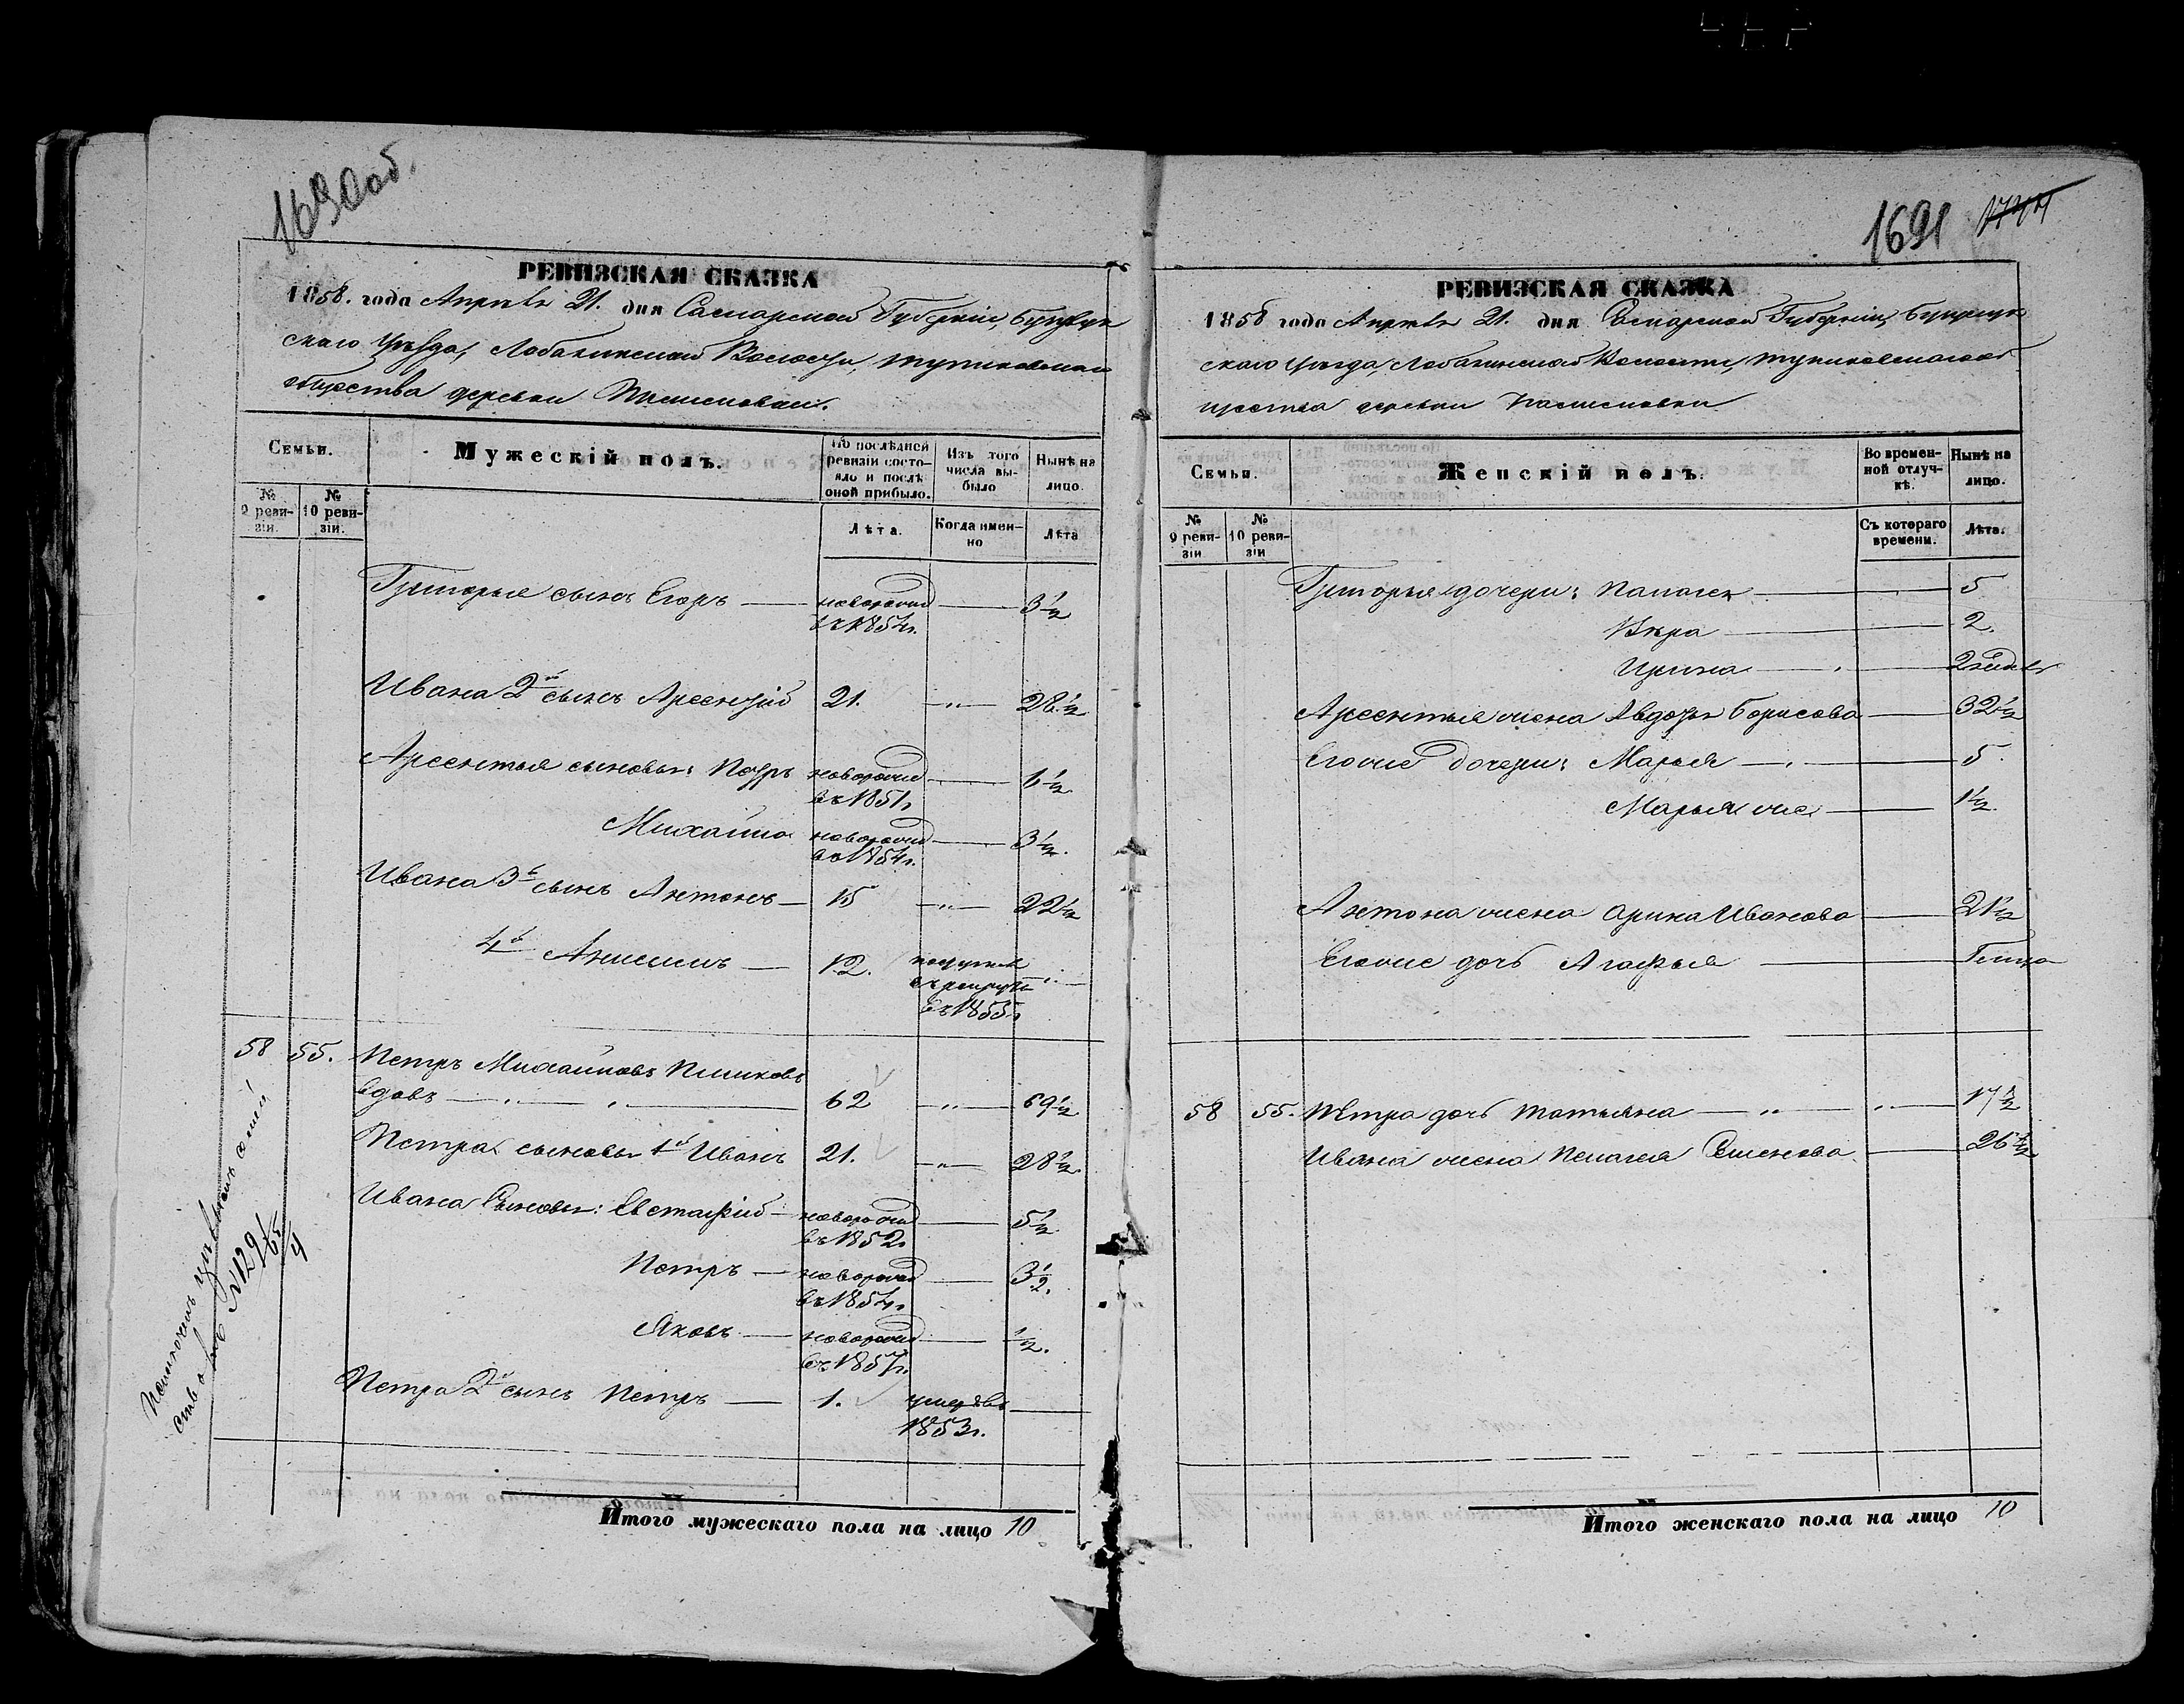 1690 об.
РЕВИЗСКАЯ СКАЗКА
1858. года Апрѣля 21. дня Самарской Губерніи, Бузулук
скаго Уѣзда, Лобазинской Волости, Тупиковскаго
общества деревни
Семьи.
Мужескій полъ.
По послѣдней ревизіи состояло и послѣ оной прибыло.
Изъ того числа выбыло
Нынѣ на лицо.
№ 9 ревизіи.
№ 10 ревизіи.
Лѣта.
Когда именно
Лѣта
Григорья сынъ Егоръ — новорожд въ 1854г. — 3½
Ивана 2й сынъ Арсентій 21. — „ — 28½
Арсентья сыновья: Петръ новорожд въ 1851г — 6½
Михайла новорожд въ 1854г. — 3½.
Ивана 3й сынъ Антонъ — 15 — „ — 22½
4й Анисимъ — 12. поступилъ въ рекруты въ 1855г — „ —
58 55. Петръ Михайловъ Пиликовъ
вдовъ — „ — „ — 62 — „ — 69½
Петра сыновья 1й Иванъ 21. — „ — 28½
Ивана Сыновья: Евстафій — новорожд въ 1852г — 5½
Петръ — новорожд въ 1854г — 3½.
Яковъ — новорожд въ 1857г. — ½.
Петра 2й сынъ Петръ — 1. умеръ въ 1853г. —
№ 129
Итого мужескаго пола на лицо 10
1691
РЕВИЗСКАЯ СКАЗКА
1858 года Апрѣля 21. дня Самарской Губерніи, Бузулук
скаго Уѣзда, Лобазинской Волости, Тупиковскаго об
щества деревни
Семьи.
Женскій полъ.
Во временной отлучкѣ.
Нынѣ на лицо.
№ 9 ревизіи
№ 10 ревизіи
Съ котораго времени.
Лѣта.
Григорья дочери: Палагея — 5
Вѣра — 2.
Ирина — 2 недѣли
Арсентья жена Авдотья Борисова — 32½
Его же дочери: Марья — „ — 5
Марья же — 1½.
Антона жена Арина Иванова — 21½
Его же дочь Агафья —
58 55. Петра дочь Татьяна — „ — „ — 17½
Ивана жена Пелагея Семенова — 26½
Итого женскаго пола на лицо 10